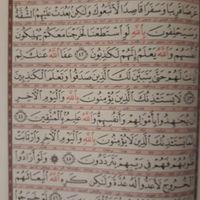 عَرَضًا قَرِيبًا وَسَفَرًا قَاصِدًا لَّاتَّبَعُوكَ وَلَٰكِنۢ بَعُدَتْ عَلَيْهِمُ الشُّقَّةُ
وَسَيَحْلِفُونَ بِاللَّهِ لَوِ اسْتَطَعْنَا لَخَرَجْنَا مَعَكُمْ يُهْلِكُونَ
أَنفُسَهُمْ وَاللَّهُ يَعْلَمُ إِنَّهُمْ لَكَٰذِبُونَ ٤٢ عَفَا اللَّهُ عَنكَ لِمَ
أَذِنتَ لَهُمْ حَتَّىٰ يَتَبَيَّنَ لَكَ الَّذِينَ صَدَقُوا وَتَعْلَمَ الْكَٰذِبِينَ
٤٣ لَا يَسْتَـْٔذِنُكَ الَّذِينَ يُؤْمِنُونَ بِاللَّهِ وَالْيَوْمِ الْءَاخِرِ
أَن يُجَٰهِدُوا بِأَمْوَٰلِهِمْ وَأَنفُسِهِمْ وَاللَّهُ عَلِيمٌۢ بِالْمُتَّقِينَ ٤٤
إِنَّمَا يَسْتَـْٔذِنُكَ الَّذِينَ لَا يُؤْمِنُونَ بِاللَّهِ وَالْيَوْمِ الْءَاخِرِ وَارْتَابَتْ
قُلُوبُهُمْ فَهُمْ فِي رَيْبِهِمْ يَتَرَدَّدُونَ ٤٥ وَلَوْ أَرَادُوا
الْخُرُوجَ لَأَعَدُّوا لَهُۥ عُدَّةً وَلَٰكِن كَرِهَ اللَّهُ انۢبِعَاثَهُمْ